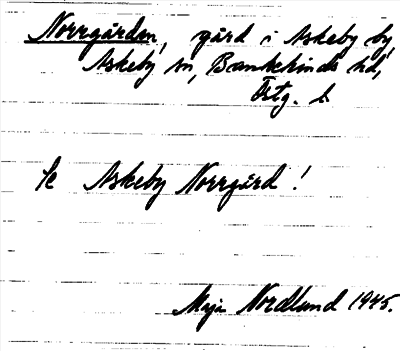 Norrgården, gård i Askeby by,
Askeby sn, Bankekinds hd,
Östg. l.
Se Askeby Norrgård!
Maja Nordlund 1945.